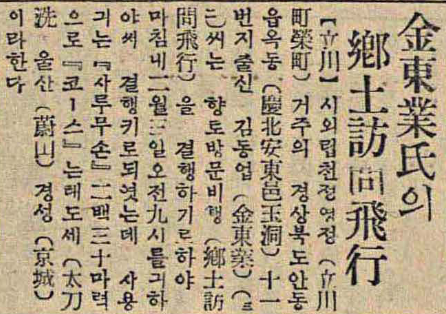 金東業氏의
鄕土訪問飛行
【立川】 시외립천정영정 (立川
町榮町) 거주의 경상북도안동
읍옥동 (慶北安東邑玉洞) 十一
번지출신 김동업 (金東業) (
씨는 향토방문비행 (鄕土訪
問飛行) 을 결행하기로하야
마침내二월三일오전九시를긔하
야써 결행키로되엿는데 사용
긔는 『사루무손』 二백三十마력
으로 『코ー스』 는테도세 (太刀
洗) 울산 (蔚山) 경성 (京城)
이라한다